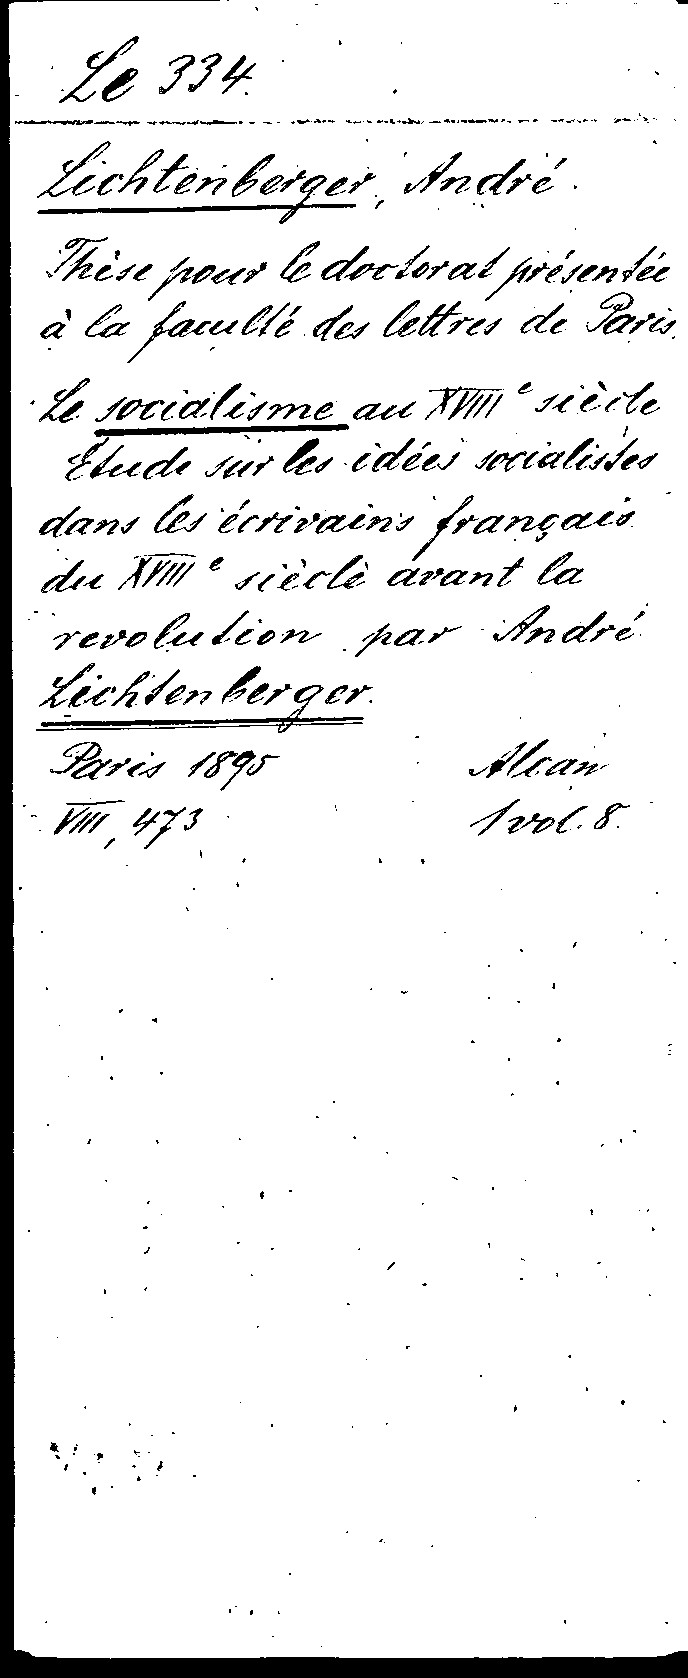 Le 334.
Lichtenberger, André.
Thèse pour le doctorat présentée
à la faculté des lettres de Paris.
Le socialisme au XVIIIe siècle
Etude sur les idées socialistes
dans les écrivains français
du XVIIIe siècle avant la
revolution par André
Lichtenberger.
Paris 1895 Alcan
VIII, 473 1 vol. 8.